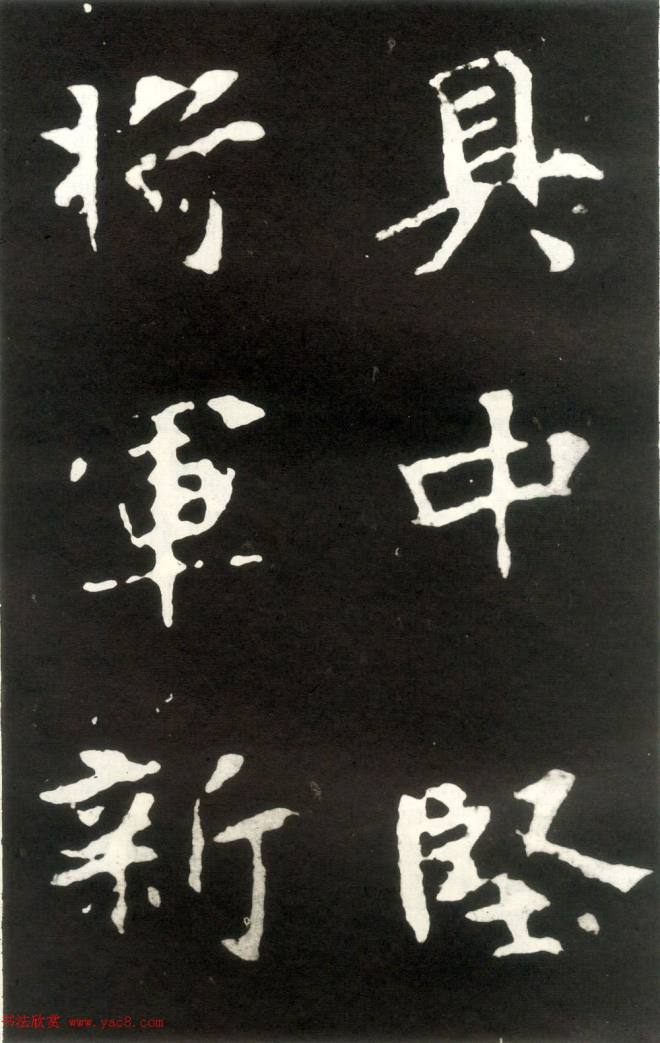 具中堅
将軍新
书法欣赏 www.yac8.com